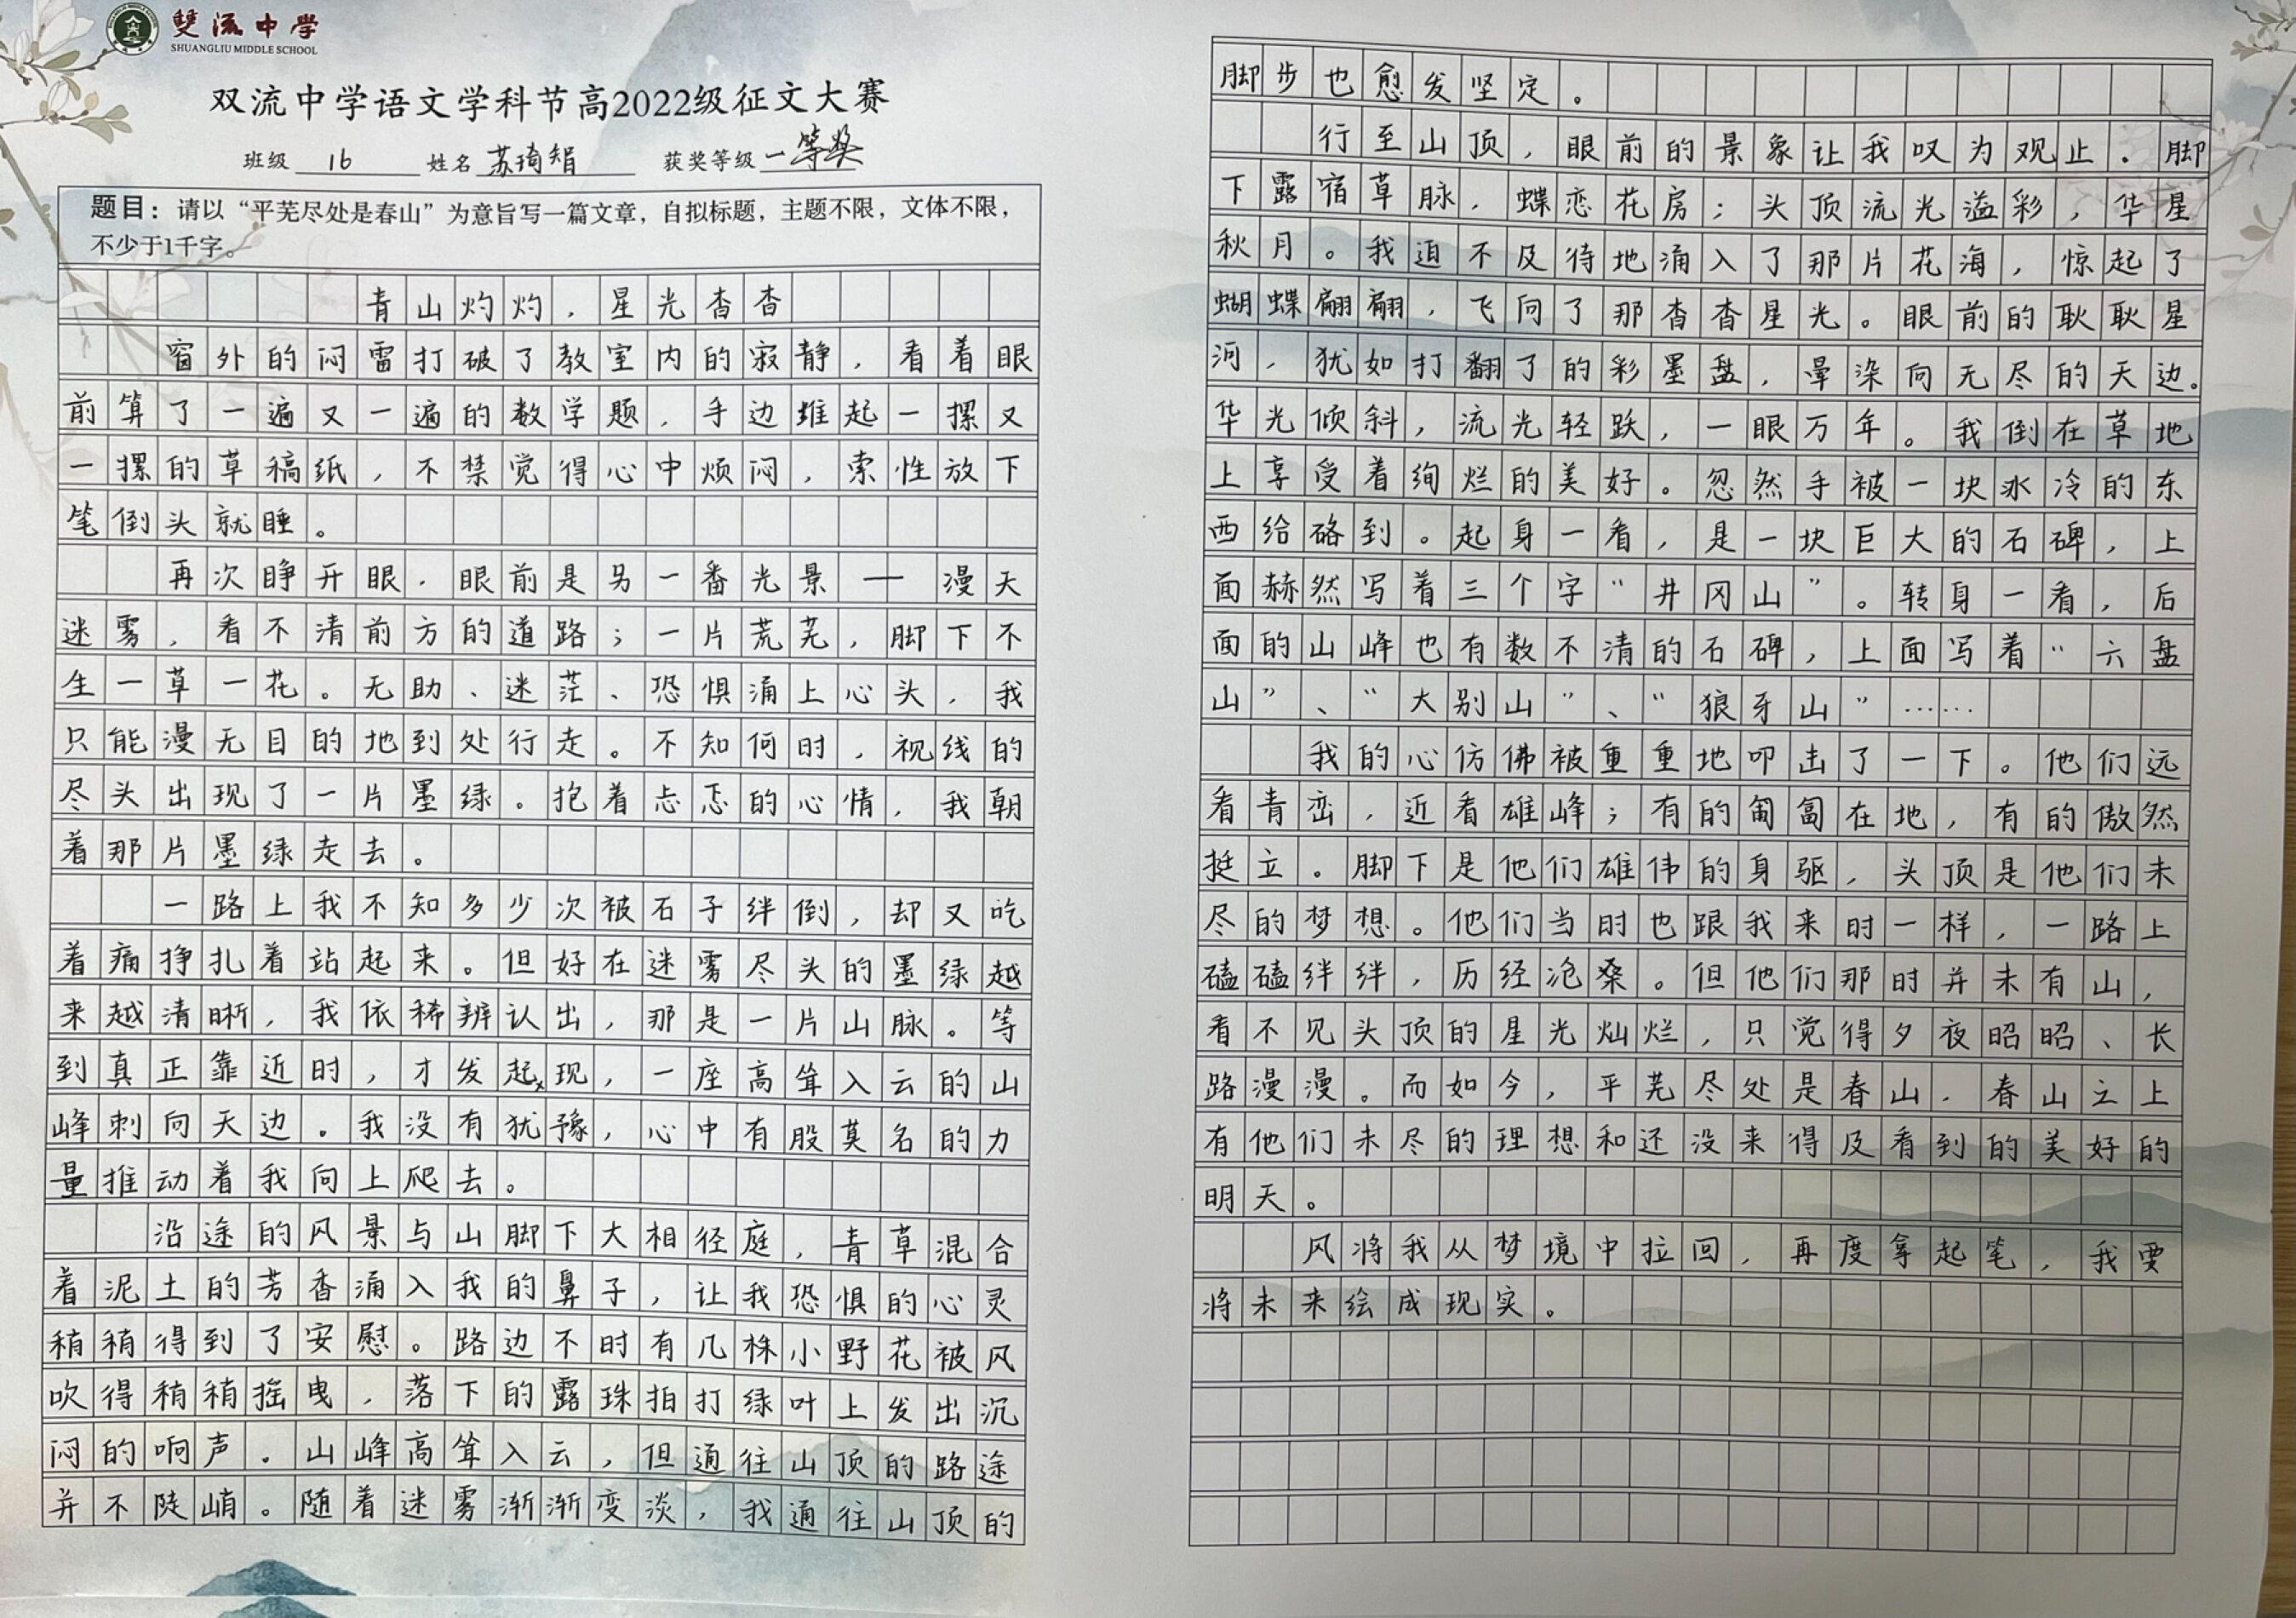 雙流中学
SHUANGLIU MIDDLE SCHOOL
双流中学语文学科节高2022级征文大赛
班级 16 姓名 苏琦媚 获奖等级 一等奖
题目：请以“平芜尽处是春山”为意旨写一篇文章，自拟标题，主题不限，文体不限，
不少于1千字。
青山灼灼，星光杳杳
窗外的闷雷打破了教室内的寂静，看着眼
前算了一遍又一遍的数学题，手边堆起一摞又
一摞的草稿纸，不禁觉得心中烦闷，索性放下
笔倒头就睡。
再次睁开眼，眼前是另一番光景——漫天
迷雾，看不清前方的道路；一片荒芜，脚下不
生一草一花。无助、迷茫、恐惧涌上心头，我
只能漫无目的地到处行走。不知何时，视线的
尽头出现了一片墨绿。抱着忐忑的心情，我朝
着那片墨绿走去。
一路上我不知多少次被石子绊倒，却又吃
着痛挣扎着站起来。但好在迷雾尽头的墨绿越
来越清晰，我依稀辨认出，那是一片山脉。等
到真正靠近时，才发起现，一座高耸入云的山
峰刺向天边。我没有犹豫，心中有股莫名的力
量推动着我向上爬去。
沿途的风景与山脚下大相径庭，青草混合
着泥土的芳香涌入我的鼻子，让我恐惧的心灵
稍稍得到了安慰。路边不时有几株小野花被风
吹得稍稍摇曳，落下的露珠拍打绿叶上发出沉
闷的响声。山峰高耸入云，但通往山顶的路途
并不陡峭。随着迷雾渐渐变淡，我通往山顶的
脚步也愈发坚定。
行至山顶，眼前的景象让我叹为观止。脚
下露宿草脉，蝶恋花房；头顶流光溢彩，华星
秋月。我迫不及待地涌入了那片花海，惊起了
蝴蝶翩翩，飞向了那杳杳星光。眼前的耿耿星
河，犹如打翻了的彩墨盘，晕染向无尽的天边。
华光倾斜，流光轻跃，一眼万年。我倒在草地
上享受着绚烂的美好。忽然手被一块冰冷的东
西给硌到。起身一看，是一块巨大的石碑，上
面赫然写着三个字“井冈山”。转身一看，后
面的山峰也有数不清的石碑，上面写着“六盘
山”、“大别山”、“狼牙山”……
我的心仿佛被重重地叩击了一下。他们远
看青峦，近看雄峰；有的匍匐在地，有的傲然
挺立。脚下是他们雄伟的身驱，头顶是他们未
尽的梦想。他们当时也跟我来时一样，一路上
磕磕绊绊，历经沧桑。但他们那时并未有山，
看不见头顶的星光灿烂，只觉得夕夜昭昭、长
路漫漫。而如今，平芜尽处是春山，春山之上
有他们未尽的理想和还没来得及看到的美好的
明天。
风将我从梦境中拉回，再度拿起笔，我要
将未来绘成现实。